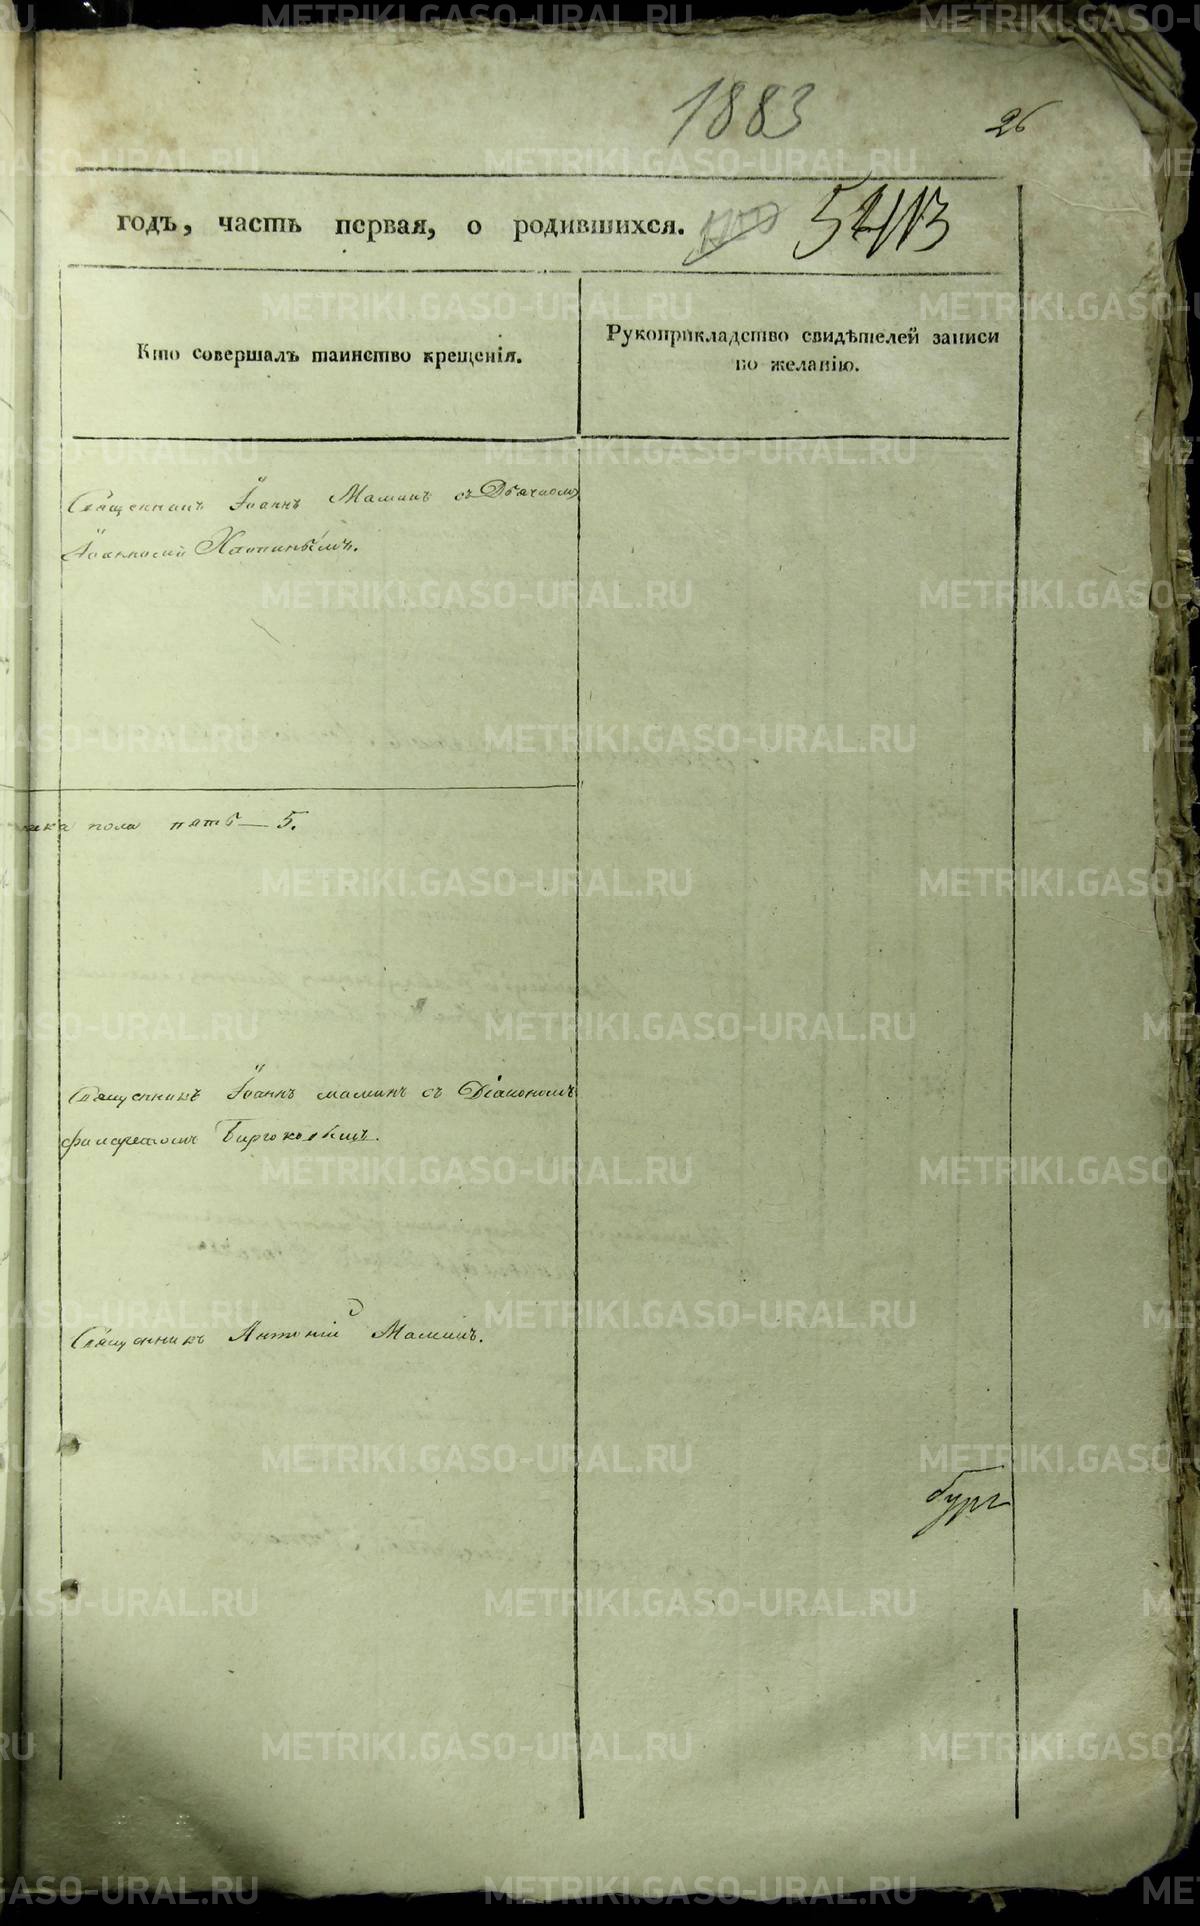 1883
26
годъ, часть первая, о родившихся. 5413
Кто совершалъ таинство крещенія.
Рукоприкладство свидѣтелей записи
по желанію.
Священникъ Іоаннъ Маминъ съ Дьячкомъ
пола пять — 5.
Священникъ Іоаннъ маминъ съ Діакономъ
филаретомъ
Священникъ Антоній Маминъ.
бург
METRIKI.GASO-URAL.RU